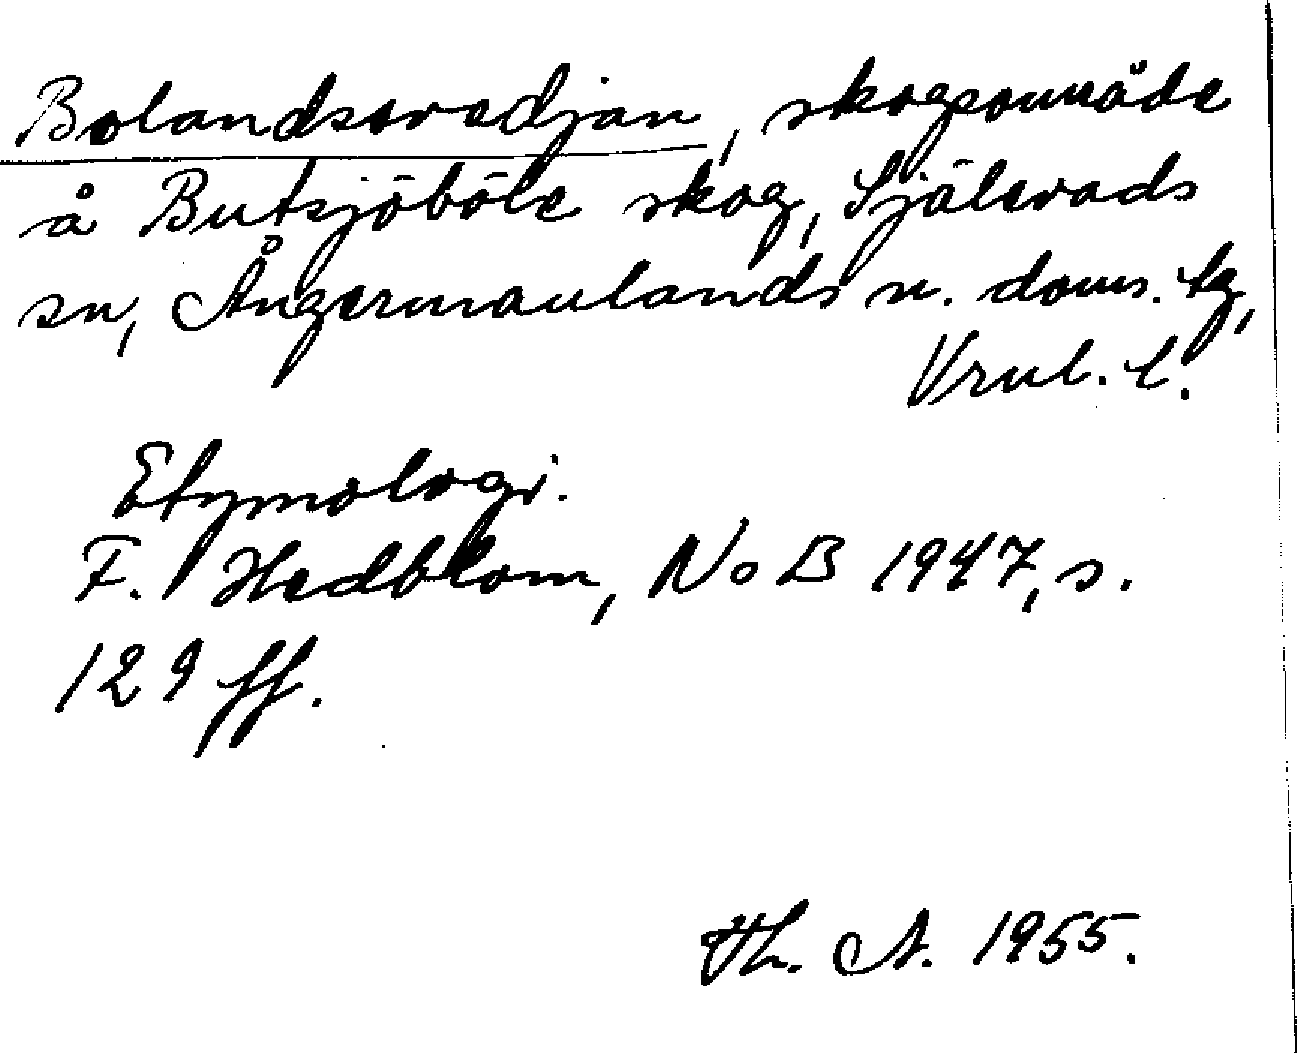 Bolandssvedjan, skogsområde
å Butsjöböle skog, Själevads
sn, Ångermanlands n. doms. lg,
Vrnl. l.
Etymologi.
F. Hedblom, NoB 1947, s.
129 ff.
Th. A. 1955.